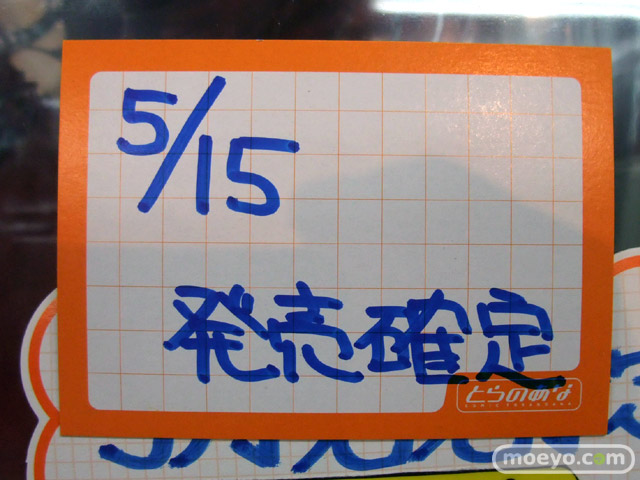 5/15
発売確定
とらのあな
moeyo.com